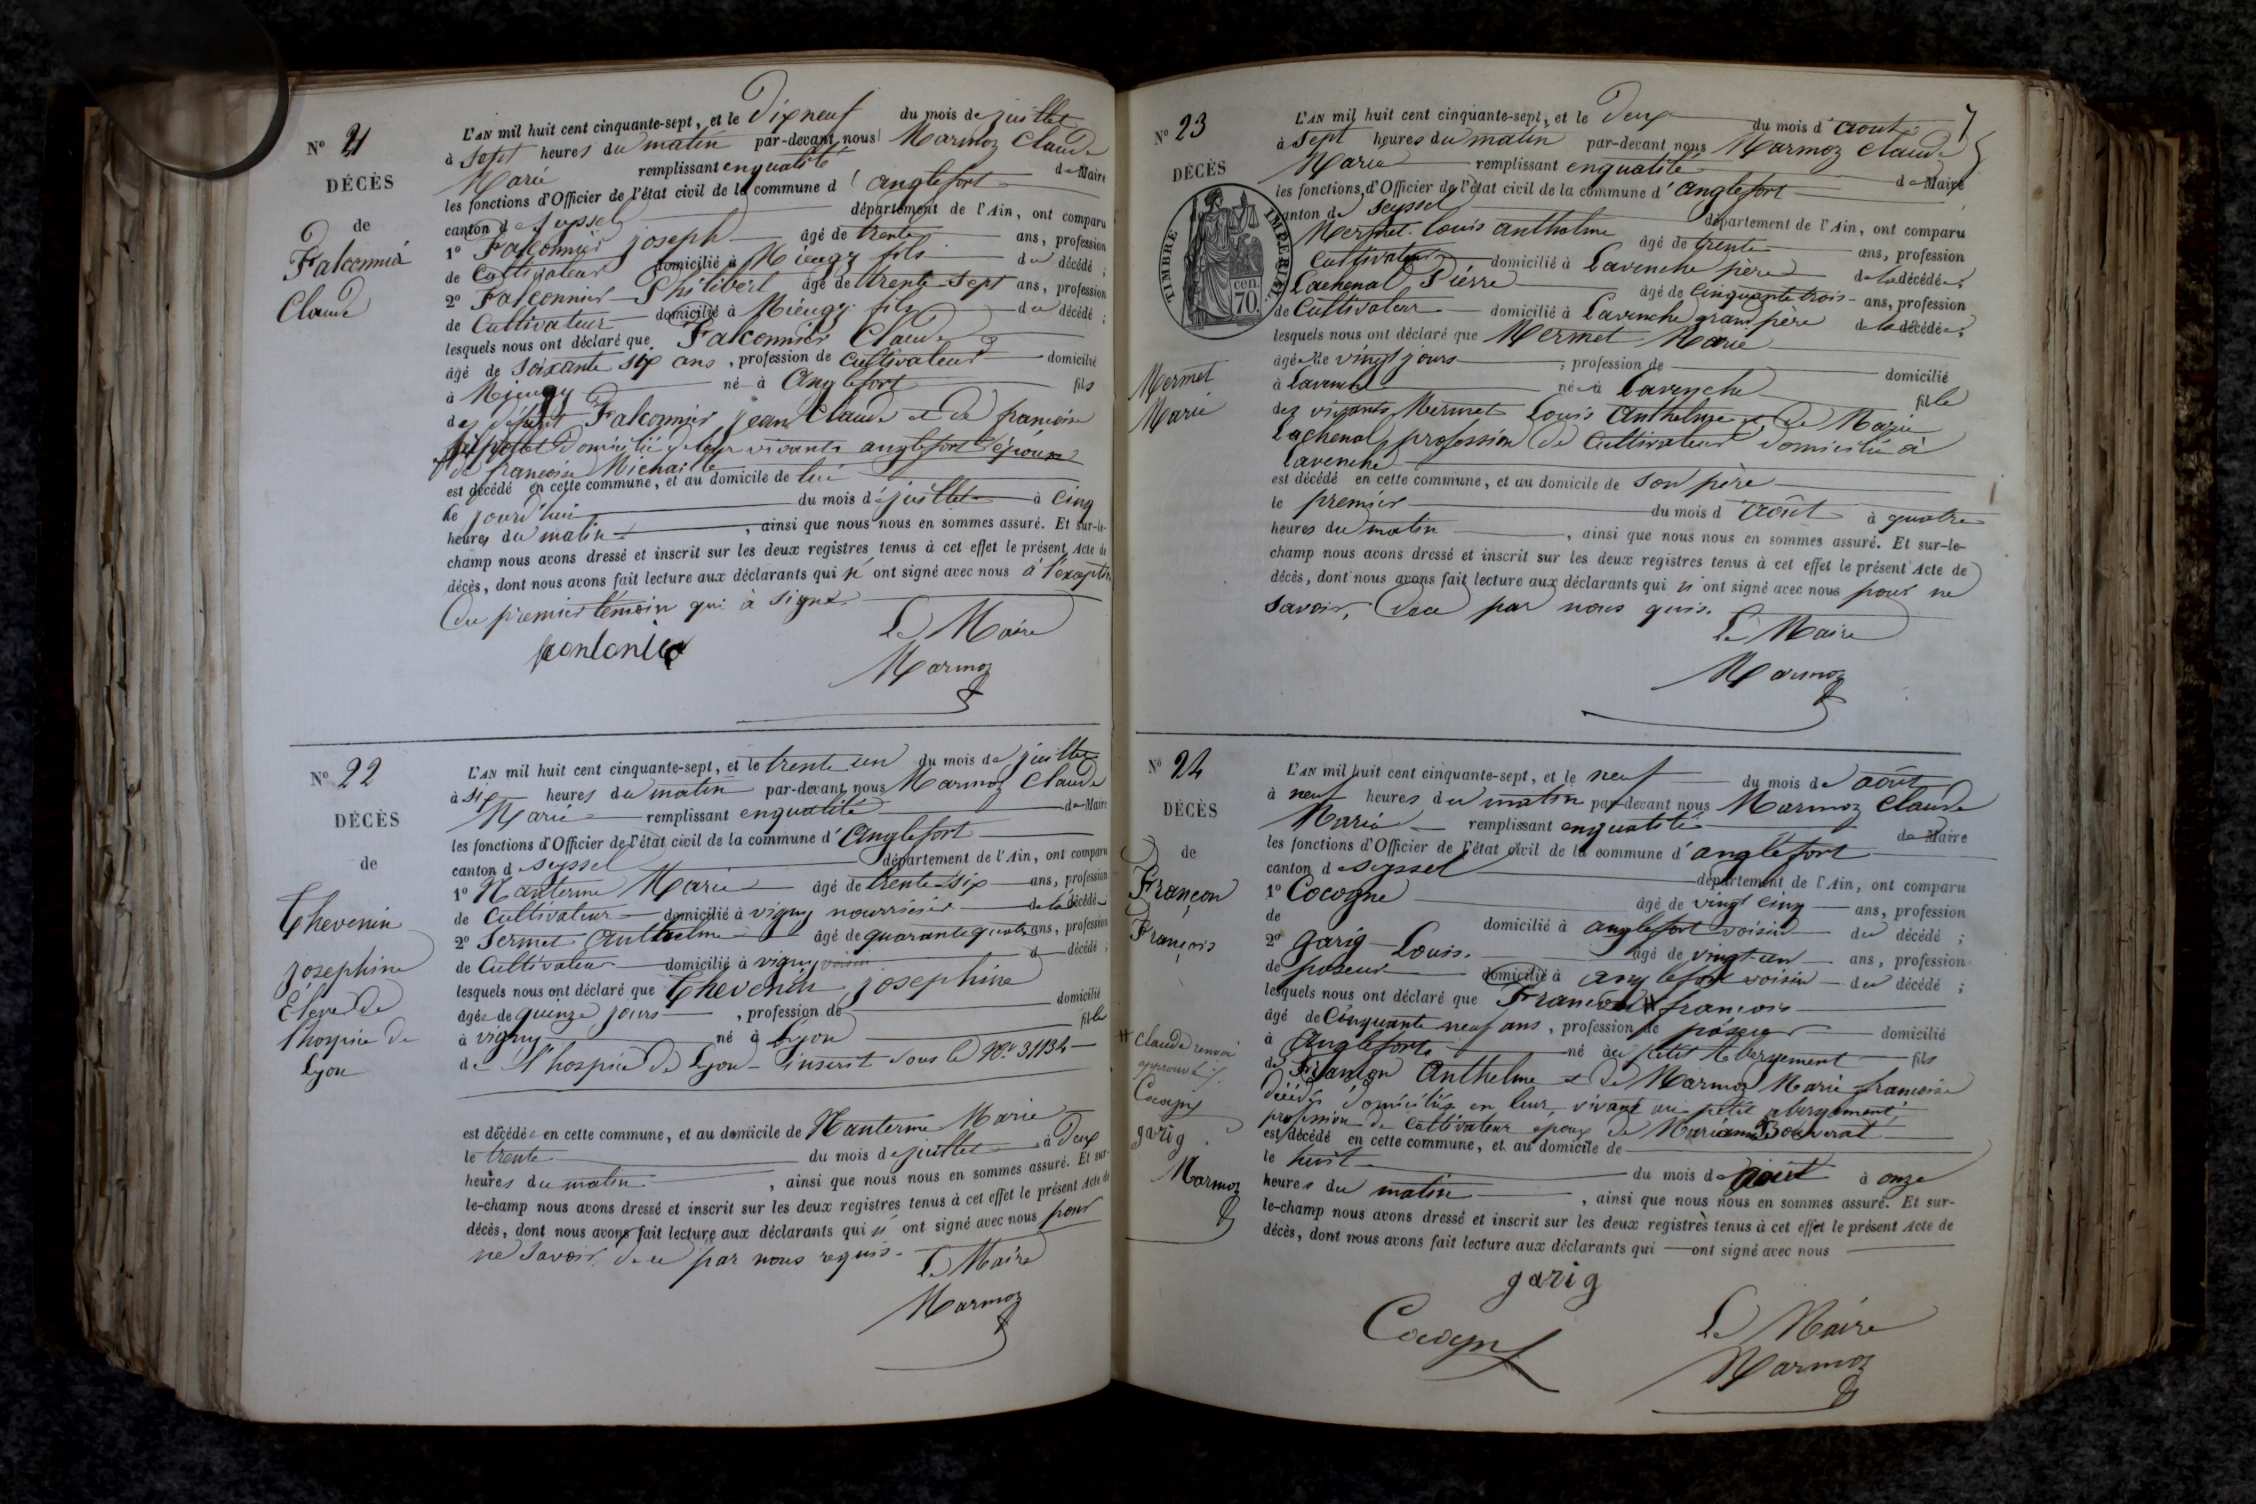 N° 21
DÉCÈS
de
Falconnié
Claude
L'AN mil huit cent cinquante-sept, et le Dixneuf du mois de juillet
à sept heures du matin par-devant nous Marmoz Claude
Marie remplissant enqualité de Maire
les fonctions d'Officier de l'état civil de la commune d' anglefort
canton de seyssel département de l'Ain, ont comparu
1° Falconnier joseph âgé de trente ans, profession
de Cultivateur domicilié à Mieugy fils du décédé ;
2° Falconnier Philibert âgé de trente-sept ans, profession
de Cultivateur domicilié à Mieugy fils du décédé ;
lesquels nous ont déclaré que Falconnier Claude
âgé de soixante six ans, profession de cultivateur domicilié
à Mieugy né à Anglefort fils
des défunt Falconnier jean Claude et de françoise
domiciliés de leur vivants anglefort époux
de françoise Michaille
est décédé en cette commune, et au domicile de lui
le jourd'hui du mois de juillet à cinq
heures du matin, ainsi que nous nous en sommes assuré. Et sur-le-
champ nous avons dressé et inscrit sur les deux registres tenus à cet effet le présent Acte de
décès, dont nous avons fait lecture aux déclarants qui n' ont signé avec nous à l'exeption
Du premier témoin qui à signé
Le Maire
Marmoz
N° 22
DÉCÈS
de
Thevenin
josephine
Élève de
l'hospice de
Lyon
L'AN mil huit cent cinquante-sept, et le trente un du mois de juillet
à six heures du matin par-devant nous Marmoz Claude
Marie remplissant enqualité de Maire
les fonctions d'Officier de l'état civil de la commune d' Anglefort
canton de seyssel département de l'Ain, ont comparu
1° Nanterme Marie âgé de trente-six ans, profession
de Cultivateur domicilié à vigny nourricier de la décédée
2° Sermet Anthelme âgé de quarante quatre ans, profession
de Cultivateur domicilié à vigny voisin d décédé ;
lesquels nous ont déclaré que Thevenin josephine
âgée de quinze jours, profession de domicilié
à vigny né à Lyon fille
de l'hospice de Lyon inscrit sous le N° 31134
est décédée en cette commune, et au domicile de Nanterme Marie
le trente du mois de juillet à Deux
heures du matin, ainsi que nous nous en sommes assuré. Et sur-
le-champ nous avons dressé et inscrit sur les deux registres tenus à cet effet le présent Acte de
décès, dont nous avons fait lecture aux déclarants qui n' ont signé avec nous pour
ne savoir de ce par nous requis.
Le Maire
Marmoz
7
N° 23
DÉCÈS
TIMBRE IMPÉRIAL
70 cen.
Mermet
Marie
L'AN mil huit cent cinquante-sept, et le Deux du mois d' aout
à sept heures du matin par-devant nous Marmoz Claude
Marie remplissant enqualité de Maire
les fonctions d'Officier de l'état civil de la commune d' anglefort
canton de seyssel département de l'Ain, ont comparu
Mermet Louis anthelme âgé de trente ans, profession
Cultivateur domicilié à Lavenche père de la décédée ;
Lachenal Pierre âgé de cinquante trois ans, profession
de Cultivateur domicilié à Lavenche grand père de la décédée ;
lesquels nous ont déclaré que Mermet Marie
âgée de vingt jours, profession de domicilié
à Lavenche née à Lavenche fille
des vivants Mermet Louis Anthelme et de Marie
Lachenal, profession de Cultivateur domicilié à
Lavenche
est décédé en cette commune, et au domicile de son père
le premier du mois d' aoùt à quatre
heures du matin, ainsi que nous nous en sommes assuré. Et sur-le-
champ nous avons dressé et inscrit sur les deux registres tenus à cet effet le présent Acte de
décès, dont nous avons fait lecture aux déclarants qui n' ont signé avec nous pour ne
savoir, de ce par nous quis.
Le Maire
Marmoz
N° 24
DÉCÈS
de
Françon
François
# Claude renvoi
approuvé
Cocogne
garig
Marmoz
L'AN mil huit cent cinquante-sept, et le neuf du mois de août
à neuf heures du matin par-devant nous Marmoz Claude
Marie remplissant enqualité de Maire
les fonctions d'Officier de l'état civil de la commune d' anglefort
canton de seyssel département de l'Ain, ont comparu
1° Cocogne âgé de vingt cinq ans, profession
de domicilié à anglefort voisin du décédé ;
2° garig Louis. âgé de vingt-un ans, profession
de poseur domicilié à anglefort voisin du décédé ;
lesquels nous ont déclaré que Françon # françois
âgé de cinquante neuf ans, profession de poseur domicilié
à Anglefort né au petit Abergement fils
de Françon Anthelme et de Marmoz Marie françoise
décédés domiciliés en leur vivant au petit abergement
profession de cultivateur époux de Marianne Bouverat
est décédé en cette commune, et au domicile de
le huit du mois de août à onze
heures du matin, ainsi que nous nous en sommes assuré. Et sur-
le-champ nous avons dressé et inscrit sur les deux registres tenus à cet effet le présent Acte de
décès, dont nous avons fait lecture aux déclarants qui ont signé avec nous
garig
Cocogne
Le Maire
Marmoz